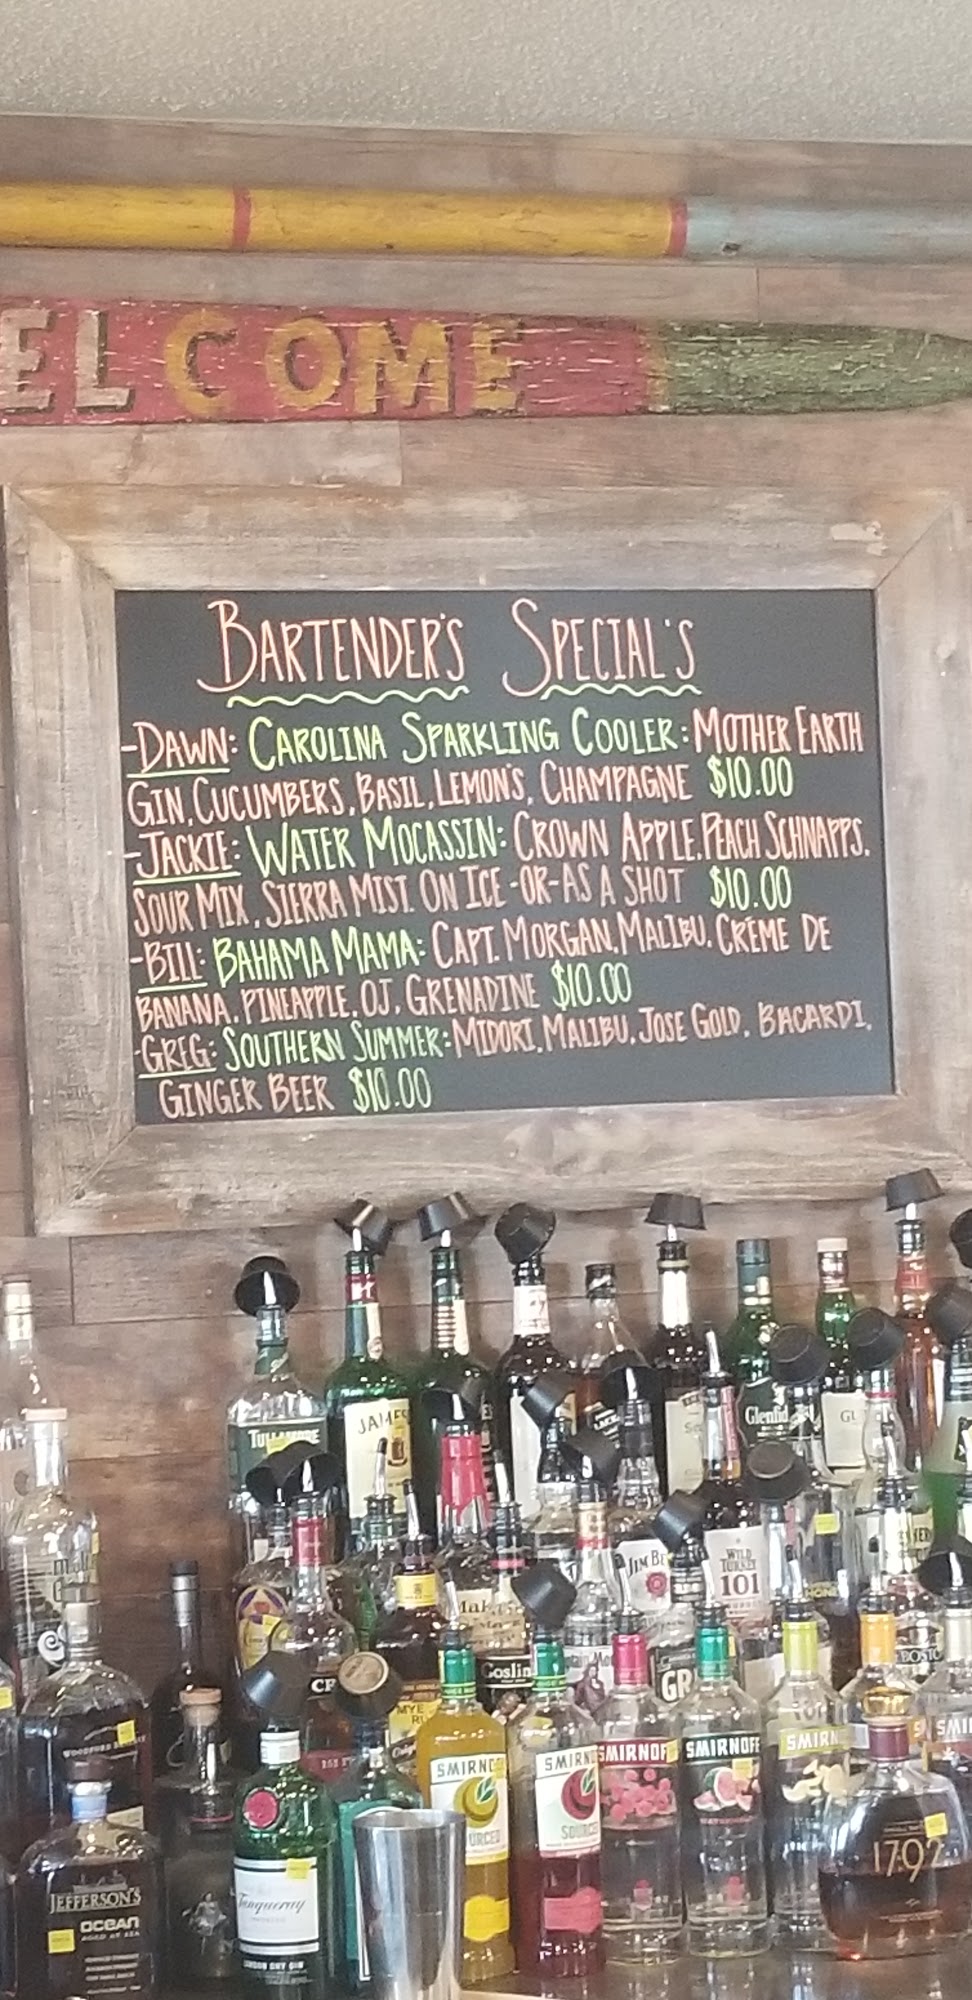 ELCOME
BARTENDER'S SPECIAL'S
-DAWN: CAROLINA SPARKLING COOLER: MOTHER EARTH
GIN, CUCUMBERS, BASIL, LEMON'S, CHAMPAGNE $10.00
-JACKIE: WATER MOCASSIN: CROWN APPLE, PEACH SCHNAPPS,
SOUR MIX, SIERRA MIST. ON ICE -OR- AS A SHOT $10.00
-BILL: BAHAMA MAMA: CAPT. MORGAN, MALIBU, CRÈME DE
BANANA, PINEAPPLE, OJ, GRENADINE $10.00
-GREG: SOUTHERN SUMMER: MIDORI, MALIBU, JOSE GOLD, BACARDI,
GINGER BEER $10.00
JAMES
Glenfid
GL
JIM BE
WILD
TURKEY
101
Goslin
GR
SMIRNO
SMIRN
SMIRNOF
SMIRNOFF
SMIRN
SMI
URCED
SOURCE
1792
Tanqueray
LONDON DRY GIN
JEFFERSON'S
OCEAN
AGED AT SEA